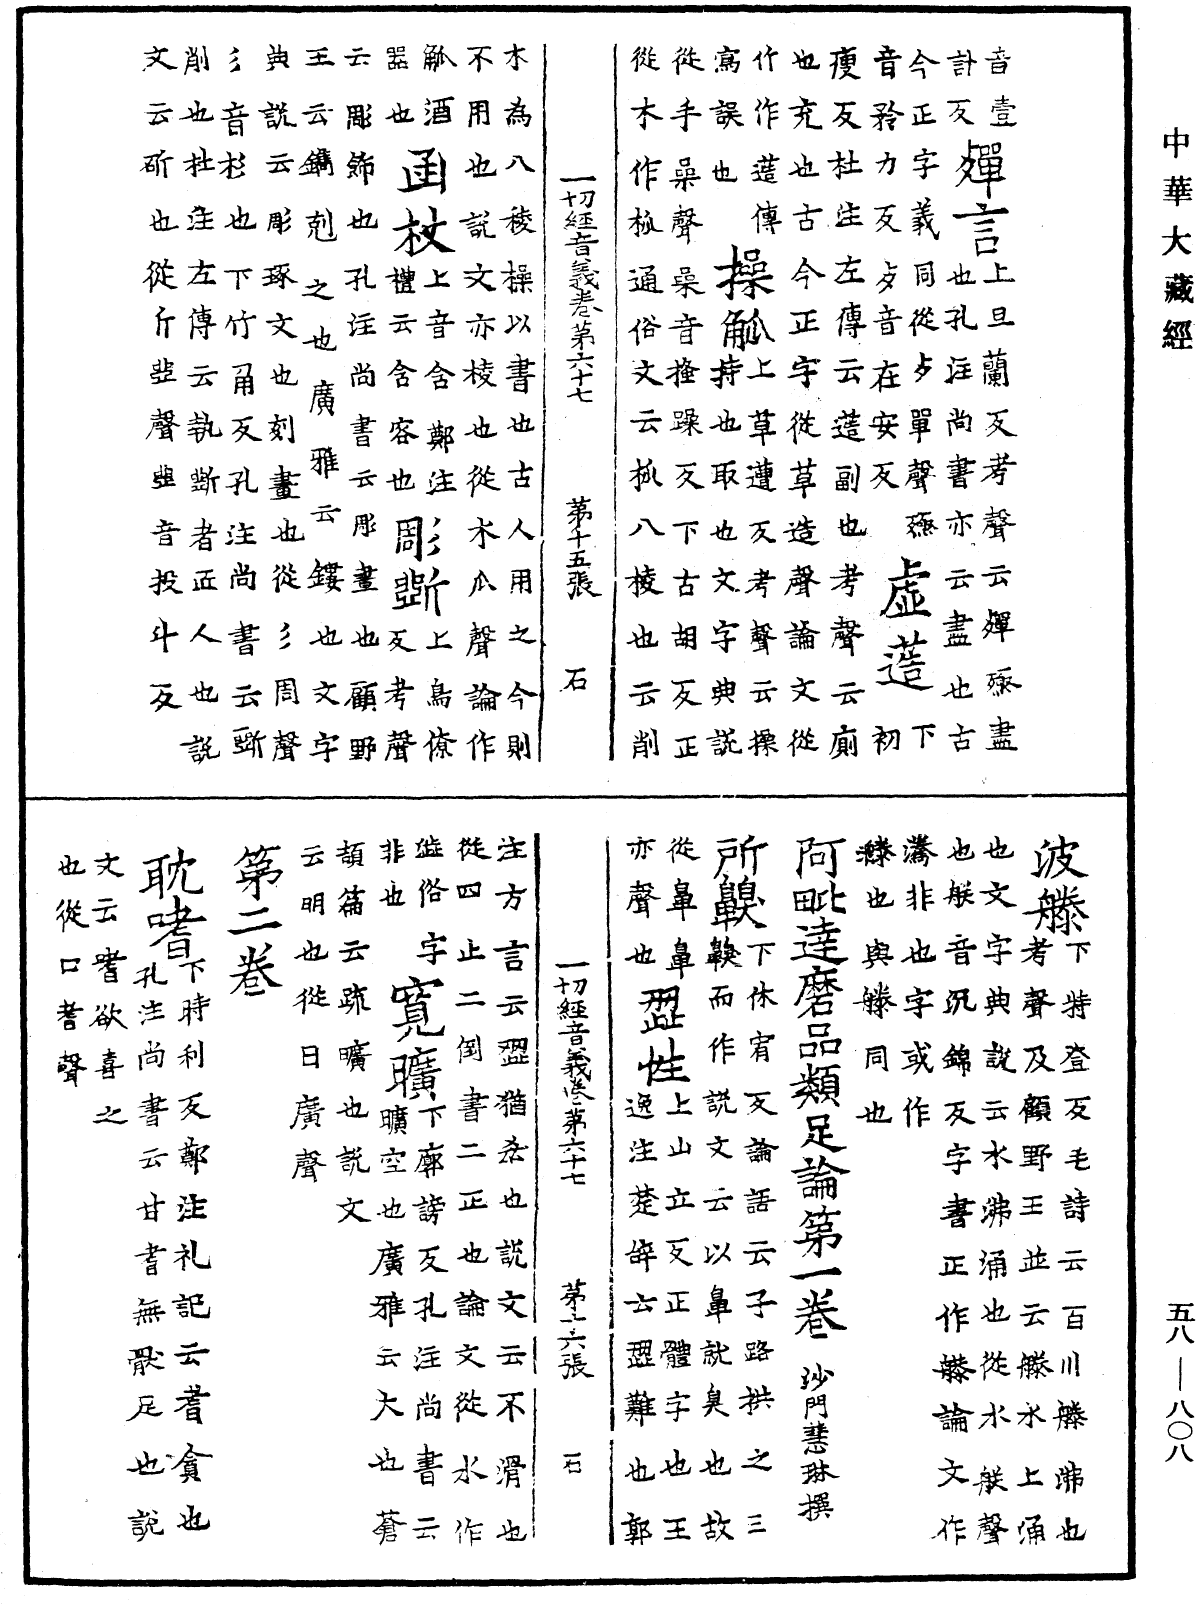 中華大藏經
音壹
計反
殫言上旦蘭反考聲云殫殛盡
也孔注尚書亦云盡也古
今正字義同從歹單聲殛下
音矜力反歹音在安反
虛𦳋初
瘦反杜注左傳云𦳋副也考聲云廁
也充也古今正字從草造聲論文從
竹作𥳑傳寫誤也
操觚上草遭反考聲云操
持也取也文字典說
從手喿聲喿音掻躁反下古胡反正
從木作柧通俗文云柧八棱也云削
木為八稜操以書也古人用之今則
不用也說文亦棱也從木瓜聲論作
觚酒器也
函杖上音含鄭注
禮云含容也
彫斲上鳥僚
反考聲
云彫飾也孔注尚書云彫畫也顧野
王云鐫剋之也廣雅云鏤也文字
典說云彫琢文也刻畫也從彡周聲
彡音杉也下竹角反孔注尚書云斲
削也杜注左傳云執斲者匠人也說
文云斫也從斤㔽聲㔽音投斗反
一切經音義卷第六十七 第十五張 石
波騰下特登反毛詩云百川騰沸也
考聲及顧野王並云騰水上涌
也文字典說云水沸涌也從水朕聲
也朕音沉錦反字書正作騰論文作
騰非也字或作
騰也與騰同也
阿毗達磨品類足論第一卷 沙門慧琳撰
所齅下休宥反論語云子路拱之三
齅而作說文云以鼻就臭也故
從鼻鼻亦聲也
澀性上山立反正體字也王
逸注楚辭云澀難也郭
注方言云澀猶𠫤也說文云不滑也
從四止二倒書二正也論文從水作
澁俗字非也
寬曠下廓謗反孔注尚書云
曠空也廣雅云大也蒼
頡篇云疏曠也說文
云明也從日廣聲
第二卷
耽嗜下時利反鄭注礼記云嗜貪也
孔注尚書云甘嗜無猒足也說
文云嗜欲喜之
也從口耆聲
一切經音義卷第六十七 第十六張 石
五八—八〇八